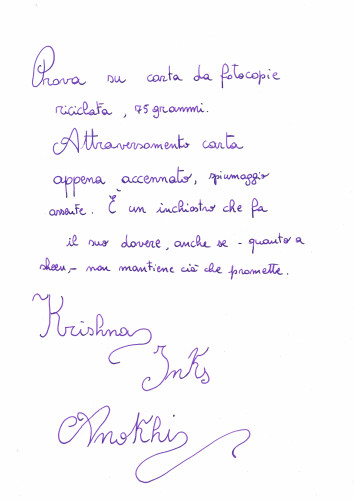 Prova su carta da fotocopie
riciclata, 75 grammi.
Attraversamento carta
appena accennato, spiumaggio
assente. È un inchiostro che fa
il suo dovere, anche se - quanto a
sheen, - non mantiene ciò che promette.
Krishna
Inks
Anokhi